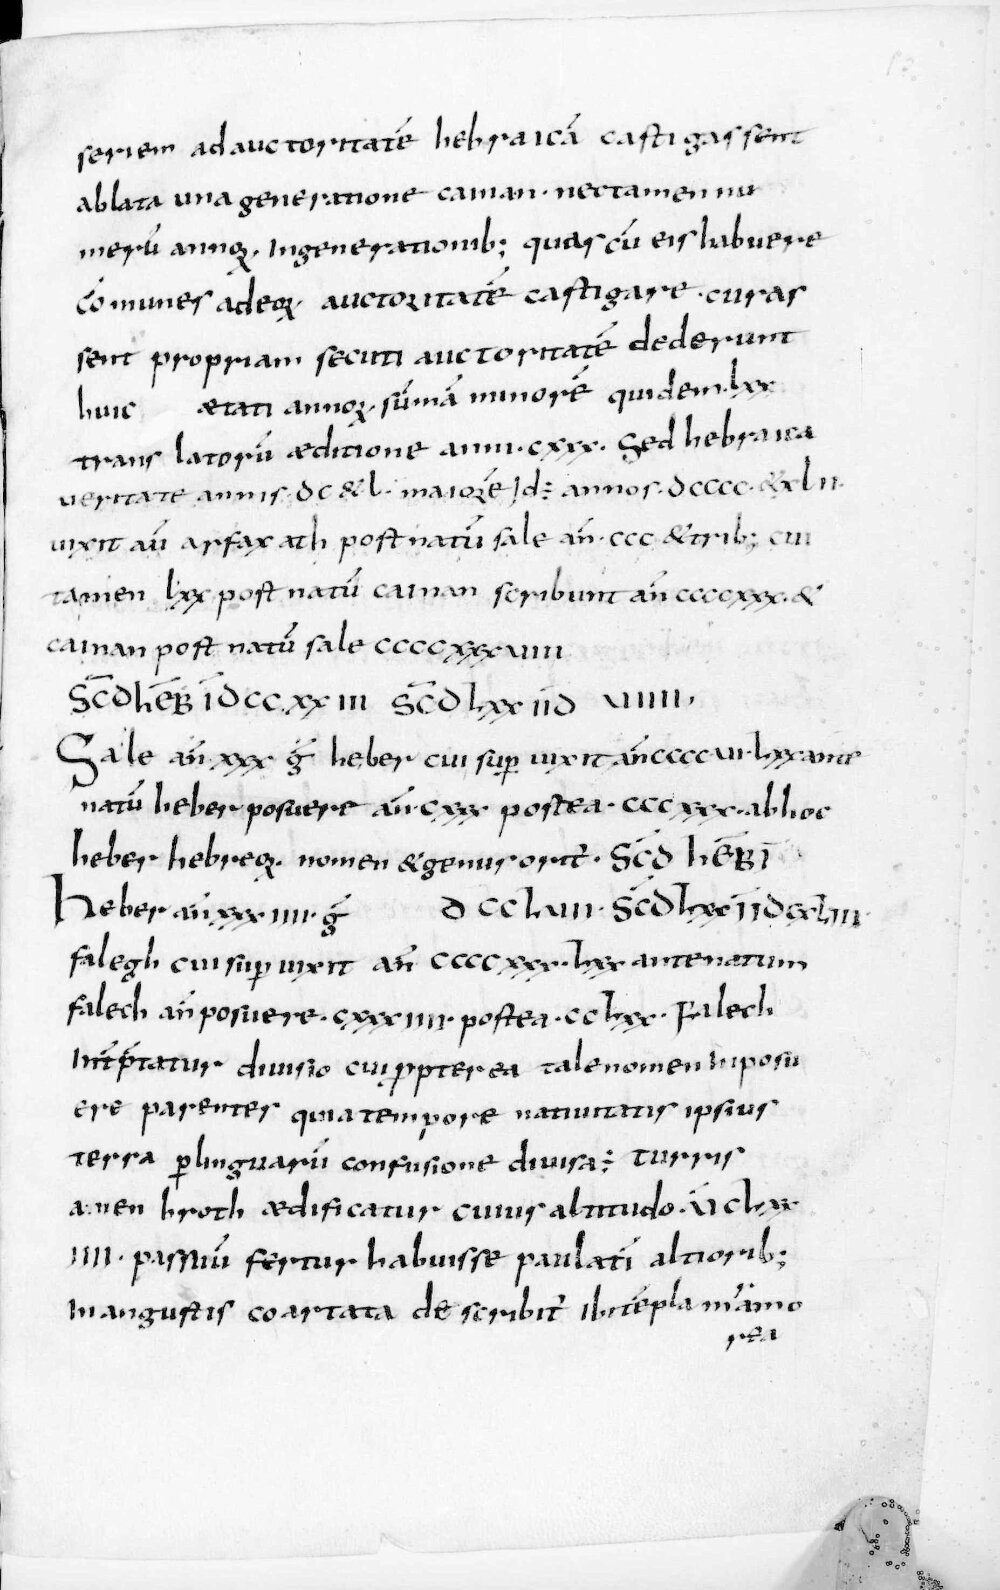 seriem ad auctoritatē hebraicā castigassent
ablata una generatione cainan· nec tamen nu
merū annoꝝ· In generationib; quas cū eis habuere
cōmunes adeoꝝ auctoꝛitatē castigare· curas
sent propriam secuti auctoritatē dederunt
huic ætati annoꝝ· sūmā minorē quidem· lxx
trans latorū æditione anni· cxxx· Sed hebraica
veritate annis· dc & l· maioꝛē id÷ annos· dcccc· & xlii·
uixit aū arfaxath post natū sale añ· ccc & trib; cui
tamen lxx post natū cainan scribunt añ ccccxxx· &
cainan post natū sale ccccxxx
SC̄D HĒB ĪDCCXXIII SC̄D LXX IID VIIII·
Sale añ xxx ḡ heber cui suꝑ uixit añ ccccui· lxx ante
natū heber posuere añ· cxxx postea· cccxxx· ab hoc
heber hebreoꝝ· nomen & genus orit̄· SC̄D HĒB Ī
Heber añ xxx iiii· ḡ DCCLVII· SC̄D LXX
falegh cui suꝑ uixit añ ccccxxx· lxx ante natum
falech añ posuere· cxxxiiii· postea· cclxx· Falech
Int̄ꝑtatur diuisio cui ꝓpterea tale nomen Inposu
ere parentes quia tempore natiuitatis ipsius
terra ꝑ linguarū confusione diuisa÷ turris
amen broth ædificatur cuius altitudo· ĪĪĪĪ clxx
iiii· passuū fertur habuisse paulatī altiorib;
In angustis coartata describit̄ Ibi tēpla marmo
rea